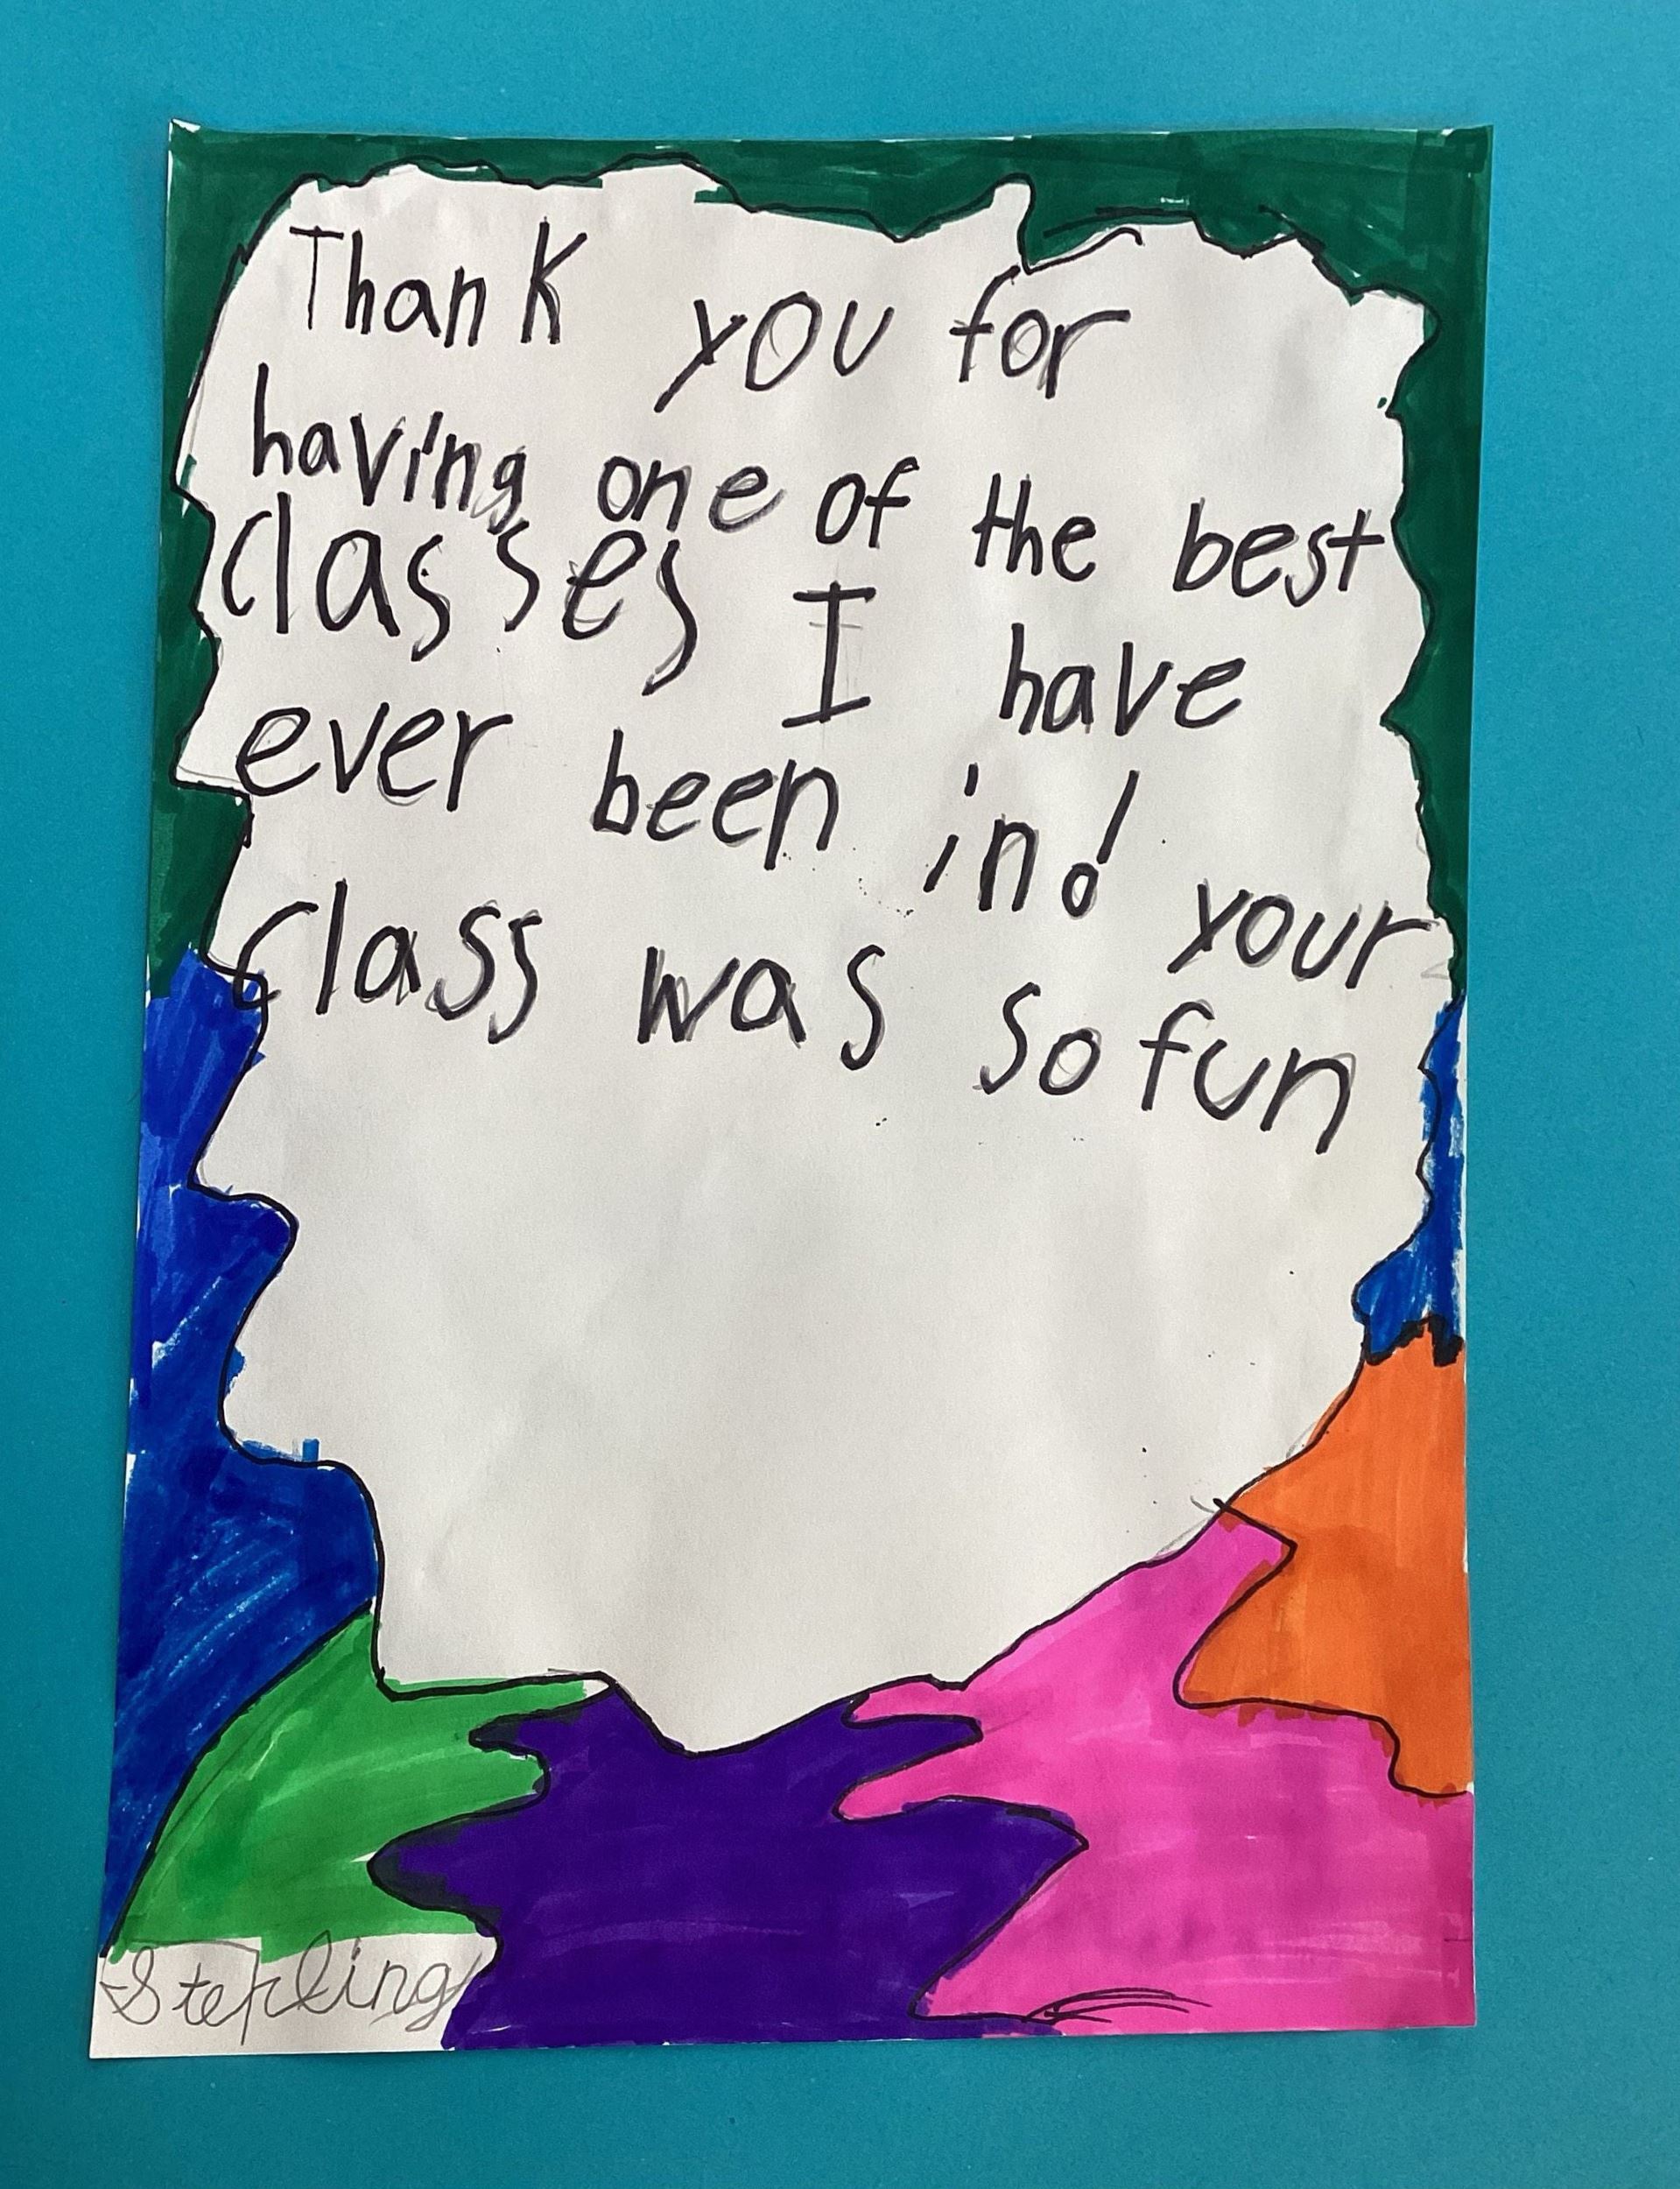 Thank you for
having one of the best
classes I have
ever been in! your
class was so fun
-Sterling